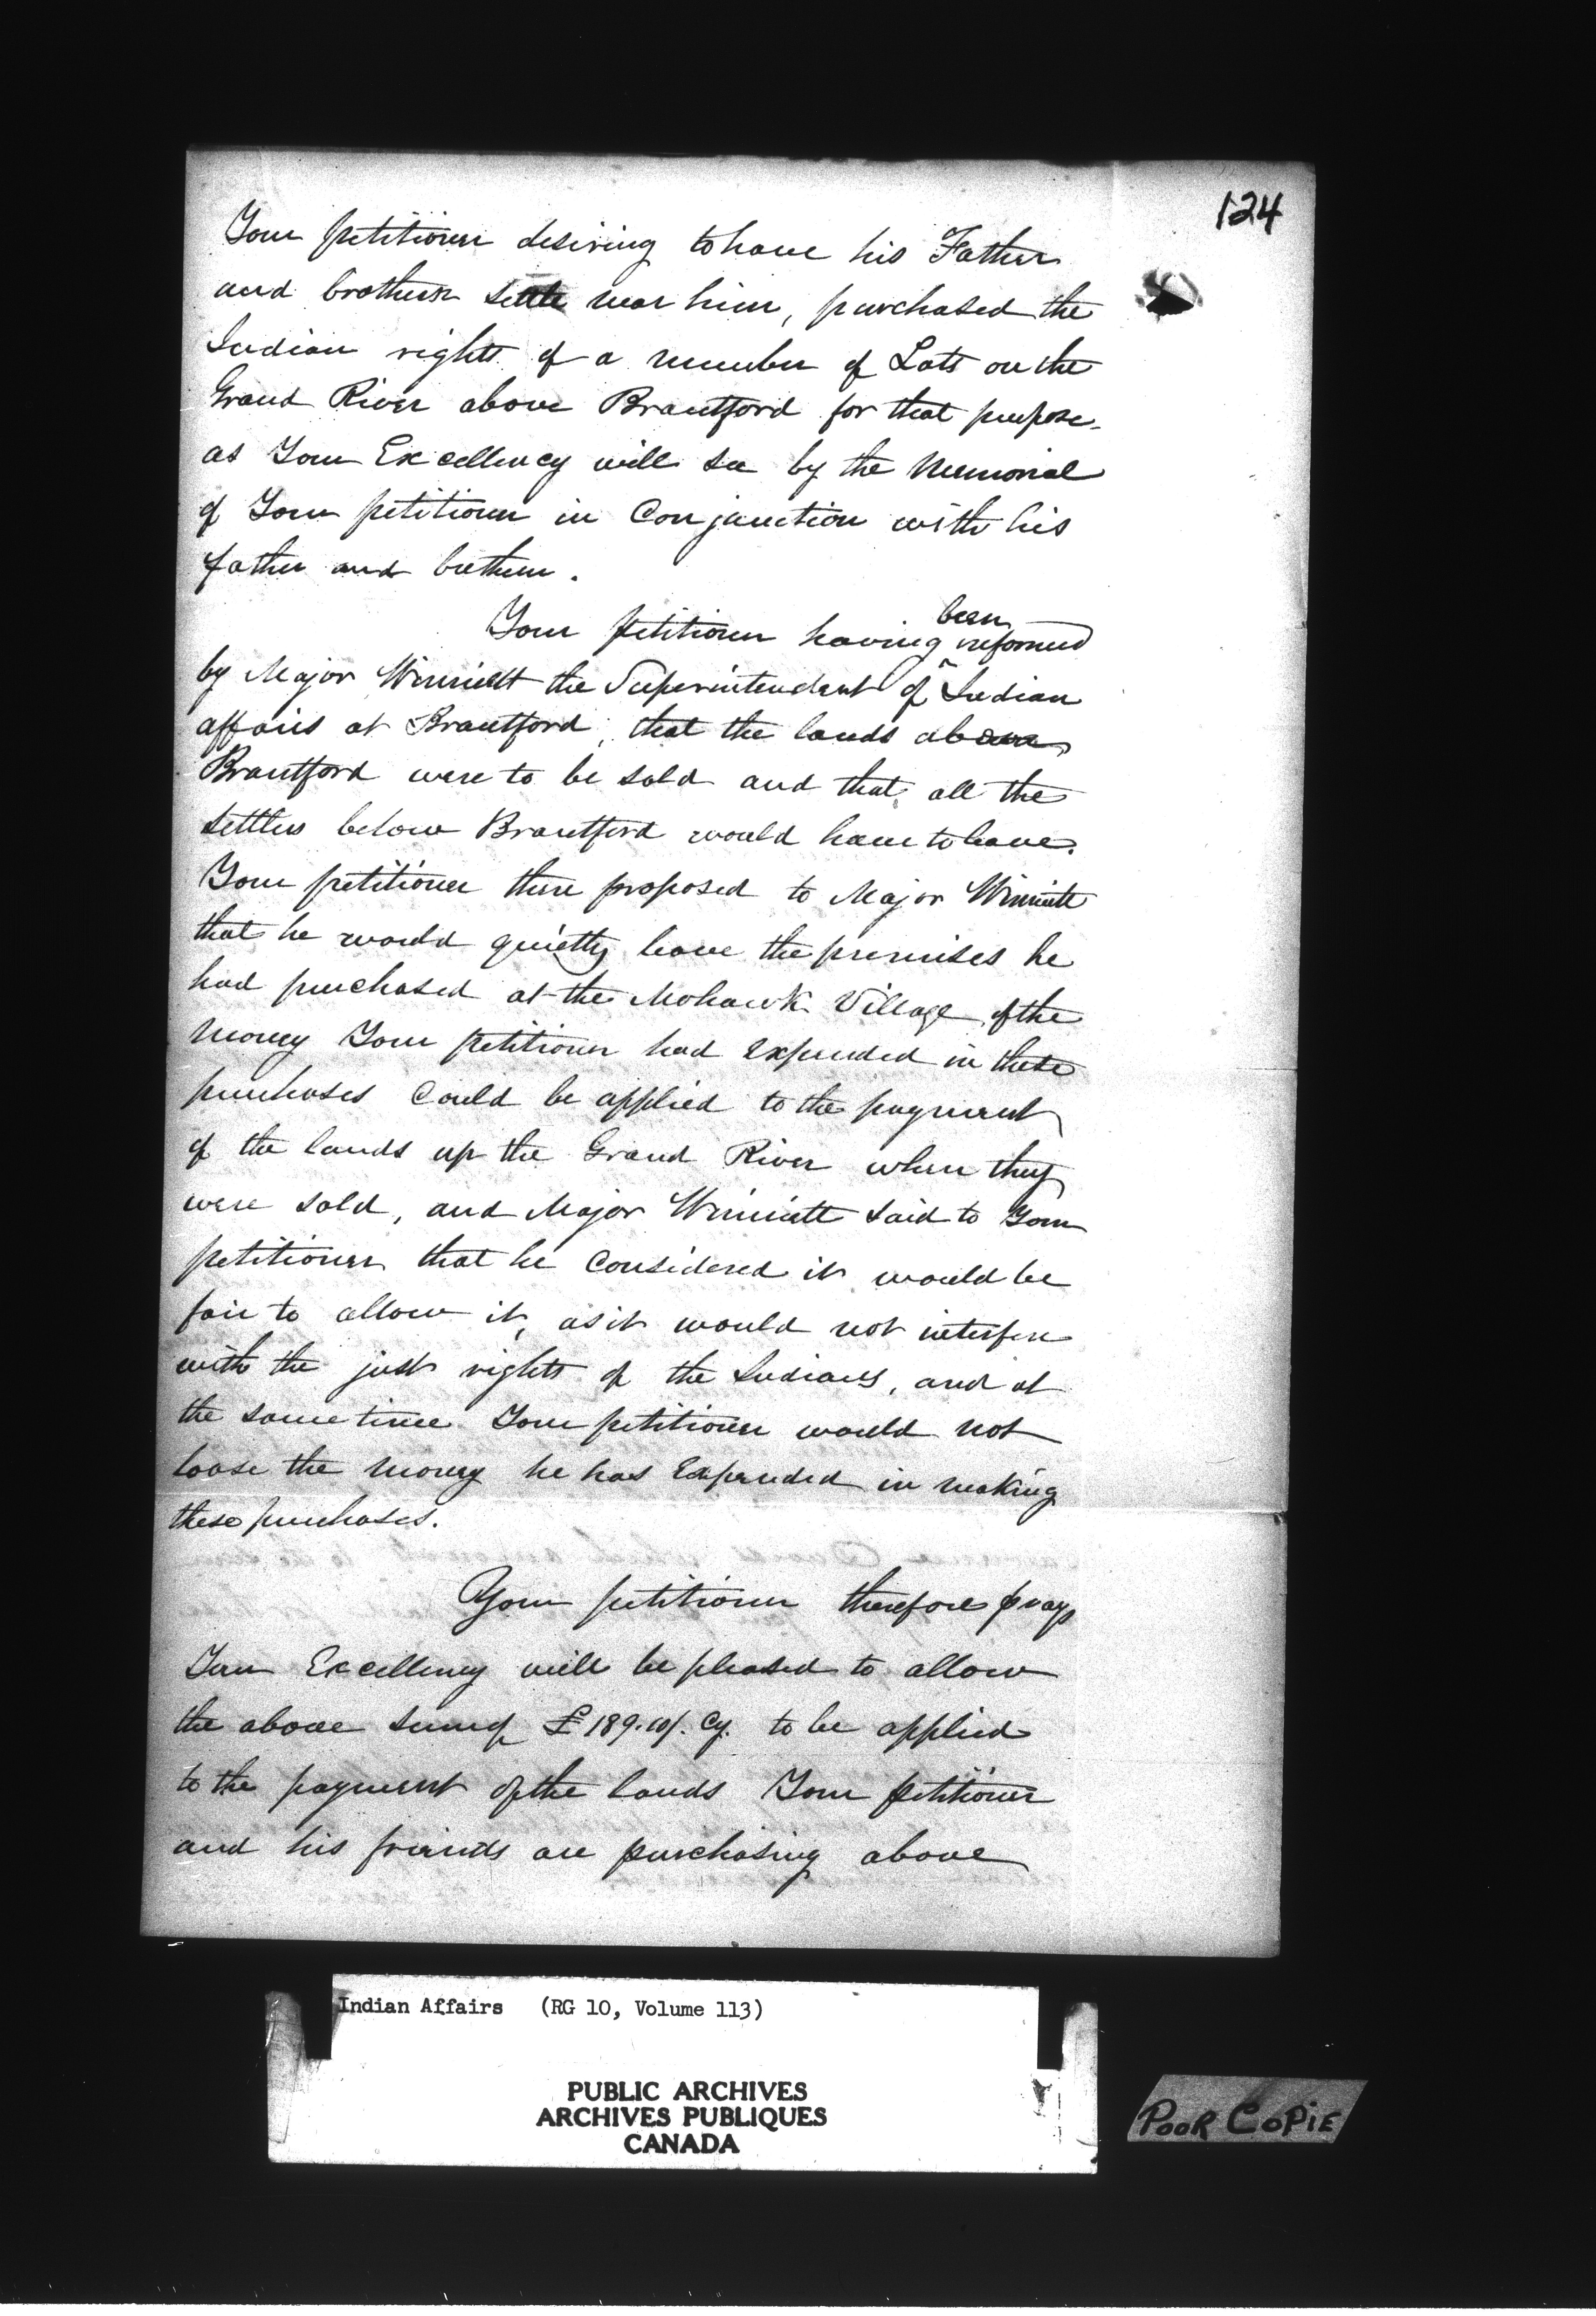 124
Your petitioner desiring to have his Father
and brothers settle near him, purchased the
Indian rights of a number of Lots on the
Grand River above Brantford for that purpose
as Your Excellency will see by the Memorial
of Your petitioner in Conjunction with his
father and brothers.
Your petitioner having been informed
by Major Winniett the Superintendant of Indian
affairs at Brantford, that the lands above
Brantford were to be sold and that all the
settlers below Brantford would have to leave.
Your petitioner then proposed to Major Winniett
that he would quietly leave the premises he
had purchased at the Mohawk Village if the
money Your petitioner had expended in these
purchases Could be applied to the payment
of the lands up the Grand River when they
were sold, and Major Winniett said to Your
petitioner that he Considered it would be
fair to allow it, as it would not interfere
with the just rights of the Indians, and at
the same time Your petitioner would not
loose the money he has Expended in making
these purchases.
Your petitioner therefore prays
Your Excellency will be pleased to allow
the above sum of £189.10/. Cy. to be applied
to the payment of the lands Your petitioner
and his friends are purchasing above
Indian Affairs (RG 10, Volume 113)
PUBLIC ARCHIVES
ARCHIVES PUBLIQUES
CANADA
POOR COPIE